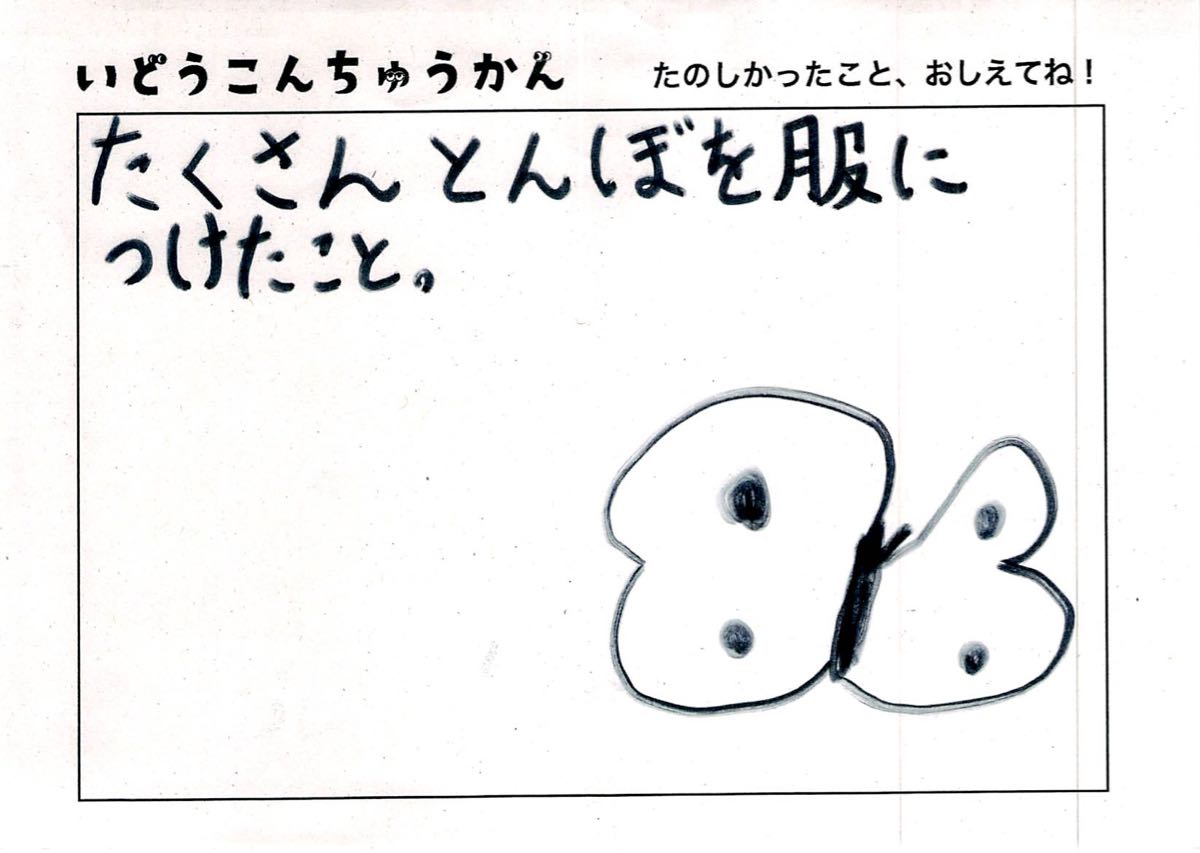 いどうこんちゅうかん
たのしかったこと、おしえてね！
たくさんとんぼを服に
つけたこと。